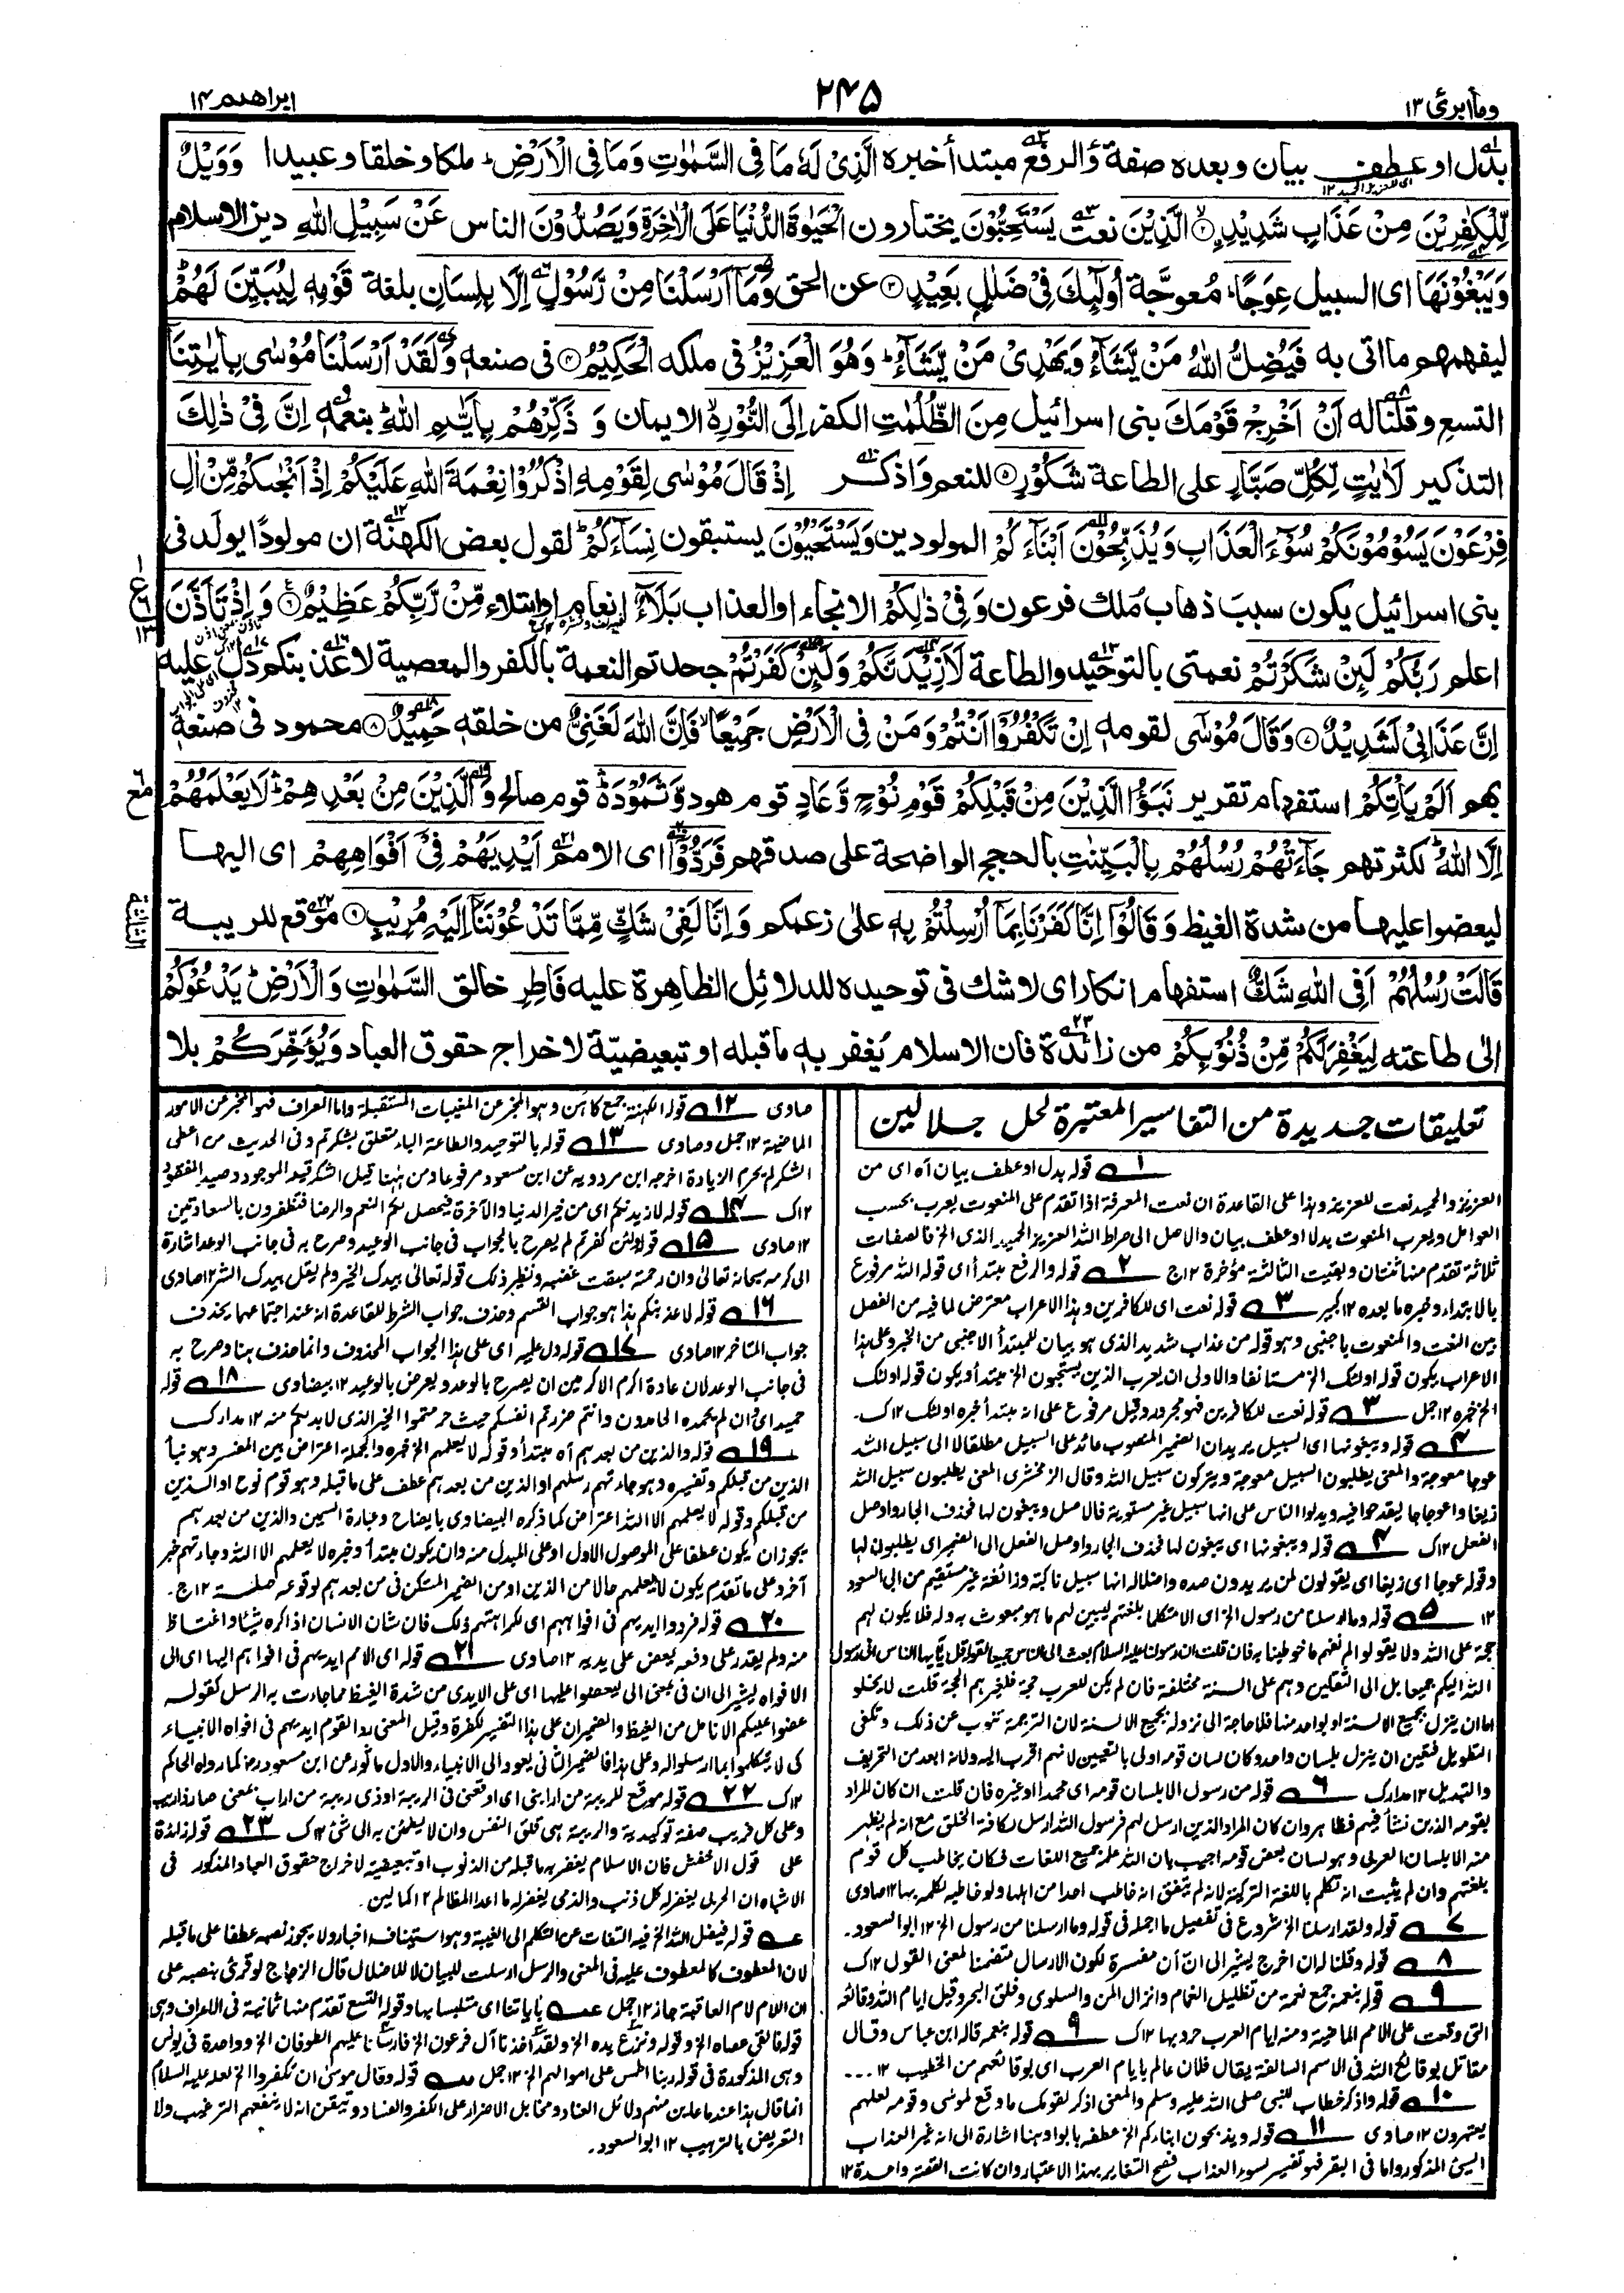 ومآ ابرئ ١٣
٢٤٥
ابراهيم ١٤
بدل او عطف بيان وبعده صفة والرفع مبتدأ خبره الَّذِىْ لَهٗ مَا فِى السَّمٰوٰتِ وَمَا فِى الْاَرْضِ ملكا وخلقا وعبيدا وَوَيْلٌ
لِّلْكٰفِرِيْنَ مِنْ عَذَابٍ شَدِيْدِ ۝٢ الَّذِيْنَ نعت يَسْتَحِبُّوْنَ يختارون الْحَيٰوةَ الدُّنْيَا عَلَى الْاٰخِرَةِ وَيَصُدُّوْنَ الناس عَنْ سَبِيْلِ اللهِ دين الاسلام
وَيَبْغُوْنَهَا اى السبيل عِوَجًا معوجَّة اُولٰٓئِكَ فِىْ ضَلٰلٍ بَعِيْدٍ ۝٣ عن الحق وَمَآ اَرْسَلْنَا مِنْ رَّسُوْلٍ اِلَّا بِلِسَانِ بلغة قَوْمِهٖ لِيُبَيِّنَ لَهُمْ
ليفهمهم ما اتى به فَيُضِلُّ اللهُ مَنْ يَّشَآءُ وَيَهْدِىْ مَنْ يَّشَآءُ وَهُوَ الْعَزِيْزُ فى ملكه الْحَكِيْمُ ۝٤ فى صنعه وَلَقَدْ اَرْسَلْنَا مُوْسٰى بِاٰيٰتِنَآ
التسع وقلنا له اَنْ اَخْرِجْ قَوْمَكَ بنى اسرائيل مِنَ الظُّلُمٰتِ الكفر اِلَى النُّوْرِ الايمان وَ ذَكِّرْهُمْ بِاَيّٰىمِ اللهِ بنعمه اِنَّ فِىْ ذٰلِكَ
التذكير لَاٰيٰتٍ لِّكُلِّ صَبَّارٍ على الطاعة شَكُوْرٍ ۝٥ للنعم وَاذكر اِذْ قَالَ مُوْسٰى لِقَوْمِهِ اذْكُرُوْا نِعْمَةَ اللهِ عَلَيْكُمْ اِذْ اَنْجٰىكُمْ مِّنْ اٰلِ
فِرْعَوْنَ يَسُوْمُوْنَكُمْ سُوْٓءَ الْعَذَابِ وَيُذَبِّحُوْنَ اَبْنَآءَكُمْ المولودين وَيَسْتَحْيُوْنَ يستبقون نِسَآءَكُمْ لقول بعض الكهنة ان مولودًا يولد فى
بنى اسرائيل يكون سبب ذهاب مُلك فرعون وَفِىْ ذٰلِكُمْ الانجاء او العذاب بَلَآءٌ انعام او ابتلاء مِّنْ رَّبِّكُمْ عَظِيْمٌ ۝٦ وَاِذْ تَاَذَّنَ
اعلم رَبُّكُمْ لَئِنْ شَكَرْتُمْ نعمتى بالتوحيد والطاعة لَاَزِيْدَنَّكُمْ وَلَئِنْ كَفَرْتُمْ جحدتم النعمة بالكفر والمعصية لاعذبنكم دل عليه
اِنَّ عَذَابِىْ لَشَدِيْدٌ ۝٧ وَقَالَ مُوْسٰٓى لقومه اِنْ تَكْفُرُوْٓا اَنْتُمْ وَمَنْ فِى الْاَرْضِ جَمِيْعًا فَاِنَّ اللهَ لَغَنِىٌّ من خلقه حَمِيْدٌ ۝٨ محمود فى صنعه
بهم اَلَمْ يَاْتِكُمْ استفهام تقرير نَبَؤُا الَّذِيْنَ مِنْ قَبْلِكُمْ قَوْمِ نُوْحٍ وَّعَادٍ قوم هود وَّثَمُوْدَ قوم صالح وَالَّذِيْنَ مِنْ بَعْدِهِمْ لَا يَعْلَمُهُمْ
اِلَّا اللهُ لكثرتهم جَآءَتْهُمْ رُسُلُهُمْ بِالْبَيِّنٰتِ بالحجج الواضحة على صدقهم فَرَدُّوْٓا اى الامم اَيْدِيَهُمْ فِىْٓ اَفْوَاهِهِمْ اى اليها
ليعضوا عليها من شدة الغيظ وَقَالُوْٓا اِنَّا كَفَرْنَا بِمَآ اُرْسِلْتُمْ بِهٖ على زعمكم وَاِنَّا لَفِىْ شَكٍّ مِّمَّا تَدْعُوْنَنَآ اِلَيْهِ مُرِيْبٍ ۝٩ موقع للريبة
قَالَتْ رُسُلُهُمْ اَفِى اللهِ شَكٌّ استفهام انكار اى لا شك فى توحيده للدلائل الظاهرة عليه فَاطِرِ خالق السَّمٰوٰتِ وَالْاَرْضِ يَدْعُوْكُمْ
الى طاعته لِيَغْفِرَ لَكُمْ مِّنْ ذُنُوْبِكُمْ من زائدة فان الاسلام يُغفر به ما قبله او تبعيضيّة لاخراج حقوق العباد وَيُؤَخِّرَكُمْ بلا
تعليقات جديدة من التفاسير المعتبرة لحل جلالين
١ قوله بدل او عطف بيان اه اى من
العزيز والحميد نعت للعزيز وهذا على القاعدة ان نعت المعرفة اذا تقدم على المنعوت يعرب بحسب
العوامل ويعرب المنعوت بدلا او عطف بيان والاصل الى صراط الله العزيز الحميد الذى الخ فالصفات
ثلاثة تقدم منها ثنتان وبقيت الثالثة مؤخرة ١٢ج ٢ قوله والرفع مبتدأ اى قوله الله مرفوع
بالابتداء وخبره ما بعده ١٢ كبير ٣ قوله نعت اى للكافرين وهذا الاعراب معترض لما فيه من الفصل
بين النعت والمنعوت باجنبى وهو قوله من عذاب شديد الذى هو بيان للمبتدأ الاجنبى من الخبر وعلى هذا
الاعراب يكون قوله اولئك الخ مستانفا والاولى ان يعرب الذين يستحبون الخ مبتدأ ويكون قوله اولئك
الخ خبره ١٢ جمل ٣ قوله نعت للكافرين فهو مجرور وقيل مرفوع على انه مبتدأ خبره اولئك ١٢ك۔
٤ قوله ويبغونها اى السبيل يريد ان الضمير المنصوب عائد على السبيل مطلقا لا الى سبيل الله
عوجا معوجة والمعنى يطلبون السبيل معوجة ويتركون سبيل الله وقال الزمخشرى المعنى يطلبون سبيل الله
زيغا واعوجاجا يقدحوا فيه ويدلوا الناس على انها سبيل غير مستوية فالاصل ويبغون لها فحذف الجار واوصل
الفعل ١٢ك ٤ قوله ويبغونها اى يبغون لها فحذف الجار واوصل الفعل الى الضمير اى يطلبون لها
وقوله عوجا اى زيغا اى يقولون لمن يريدون صده واضلاله انها سبيل ناكبة وزائغة غير مستقيم من ابى السعود
١٢ ٥ قوله وما ارسلنا من رسول الخ اى الا متكلما بلغتهم ليبين لهم ما هو مبعوث به وله فلا يكون لهم
حجة على الله ولا يقولوا لم نفهم ما خوطبنا به فان قلت ان رسولنا عليه السلام بعث الى الناس جميعا لقوله قل يٰٓايها الناس انى رسول
الله اليكم جميعا بل الى الثقلين وهم على السنة مختلفة فان لم يكن للعرب حجة فلغيرهم الحجة قلت لا يخلو
اما ان ينزل بجميع الالسنة او بواحد منها فلا حاجة الى نزوله بجميع الالسنة لان الترجمة تنوب عن ذلك وتكفى
التطويل فتعين ان ينزل بلسان واحد وكان لسان قومه اولى بالتعيين لانهم اقرب اليه ولانه ابعد من التحريف
والتبديل ١٢ مدارك ٦ قوله من رسول الا بلسان قومه اى محمد او غيره فان قلت ان كان المراد
بقومه الذين نشأ فيهم فظاهر وان كان المراد الذين ارسل لهم فرسول الله ارسل لكافة الخلق مع انه لم يظهر
منه الا بلسان العربى وهو لسان بعض قومه اجيب بان الله علمه جميع اللغات فكان يخاطب كل قوم
بلغتهم وان لم يثبت انه تكلم باللغة التركية لانه لم يتفق انه خاطب احدا من اهلها ولو خاطبه لكلمه بها ١٢ صاوى
٧ قوله ولقد ارسلنا الخ شروع فى تفصيل ما اجمله فى قوله وما ارسلنا من رسول الخ ١٢ ابو السعود۔
٨ قوله وقلنا له ان اخرج يشير الى ان أن مفسرة لكون الارسال متضمنا لمعنى القول ١٢ك
٩ قوله بنعمه جمع نعمة من تظليل الغمام وانزال المن والسلوى وفلق البحر وقيل ايام الله وقائعه
التى وقعت على الامم الماضية ومنه ايام العرب حروبها ١٢ك ٩ قوله بنعمه قاله ابن عباس وقال
مقاتل بوقائع الله فى الامم السالفة يقال فلان عالم بايام العرب اى بوقائعهم من الخطيب ١٢ ...
١٠ قوله واذكر خطاب للنبى صلى الله عليه وسلم والمعنى اذكر لقومك ما وقع لموسى وقومه لعلهم
يعتبرون ١٢ صاوى ١١ قوله ويذبحون ابناءكم الخ عطفه بالواو هنا اشارة الى انه غير العذاب
السئ المذكور واما فى البقر فهو تفسير لسوء العذاب فصح التغاير بهذا الاعتبار وان كانت القصة واحدة ١٢
صاوى ١٢ قوله الكهنة جمع كاهن وهو المخبر عن المغيبات المستقبلة واما العراف فهو المخبر عن الامور
الماضية ١٢ جمل وصاوى ١٣ قوله بالتوحيد والطاعة الباء متعلق بشكرتم وفى الحديث من اعطى
الشكر لم يحرم الزيادة اخرجه ابن مردويه عن ابن مسعود مرفوعا ومن ههنا قيل الشكر قيد الموجود وصيد المفقود
١٢ك ١٤ قوله لازيدنكم اى من خير الدنيا والآخرة فيحصل لكم النعم والرضا فتظفرون بالسعادتين
١٢ صاوى ١٥ قوله ولئن كفرتم لم يصرح بالجواب فى جانب الوعيد وصرح به فى جانب الوعد اشارة
الى كرمه سبحانه تعالى وان رحمته سبقت غضبه ونظير ذلك قوله تعالى بيدك الخير ولم يقل بيدك الشر ١٢ صاوى
١٦ قوله لاعذبنكم هذا هو جواب القسم وحذف جواب الشرط للقاعدة انه عند اجتماعهما يحذف
جواب المتاخر ١٢ صاوى ١٧ قوله دل عليه اى على هذا الجواب المحذوف وانما حذف هنا وصرح به
فى جانب الوعد لان عادة اكرم الاكرمين ان يصرح بالوعد ويعرض بالوعيد ١٢ بيضاوى ١٨ قوله
حميد اى وان لم يحمده الحامدون وانتم ضررتم انفسكم حيث حرمتموا الخير الذى لا بد لكم منه ١٢ مدارك
١٩ قوله والذين من بعدهم اه مبتدأ وقوله لا يعلمهم الخ خبره والجملة اعتراض بين المفسر وهو نبأ
الذين من قبلكم وتفسيره وهو جاءتهم رسلهم او الذين من بعدهم عطف على ما قبله وهو قوم نوح او الذين
من قبلكم وقوله لا يعلمهم الا الله اعتراض كما ذكره البيضاوى بايضاح وعبارة السمين والذين من بعدهم
يجوز ان يكون عطفا على الموصول الاول او على المبدل منه وان يكون مبتدأ وخبره لا يعلمهم الا الله وجاءتهم خبر
آخر وعلى ما تقدم يكون لا يعلمهم حالا من الذين او من الضمير المستكن فى من بعدهم لوقوعه صلة ١٢ج۔
٢٠ قوله فردوا ايديهم فى افواههم اى لكراهتهم ذلك فان شان الانسان اذا كره شيئا واغتاظ
منه ولم يقدر على دفعه يعض على يديه ١٢ صاوى ٢١ قوله اى الامم ايديهم فى افواههم اليها اى الى
الافواه يشير الى ان فى بمعنى الى ليعضوا عليها اى على الايدى من شدة الغيظ مما جاءت به الرسل كقوله
عضوا عليكم الانامل من الغيظ والضميران على هذا التفسير لكفرة وقيل المعنى ردوا القوم ايديهم فى افواه الانبياء
كى لا يتكلموا بما ارسلوا له وعلى هذا فالضمير الثانى يعود الى الانبياء والاول ماثور عن ابن مسعود رض كما رواه الحاكم
١٢ك ٢٢ قوله موقع للريبة من ارابنى اى اوقعنى فى الريبة او ذى ريبة من اراب بمعنى صار ذا ريب
وعلى كل فريب صفة توكيدية والريبة هى قلق النفس وان لا يطمئن به الى شئ ١٢ك ٢٣ قوله زائدة
على قول الاخفش فان الاسلام يغفر به ما قبله من الذنوب او تبعيضية لاخراج حقوق العباد المذكور فى
الاشباه ان الحربى يغفر له كل ذنب والذمى يغفر له ما عدا المظالم ١٢ كمالين۔
عه قوله فيضل الله الخ فيه التفات عن التكلم الى الغيبة وهو استيناف اخبار ولا يجوز نصبه عطفا على ما قبله
لان المعطوف كالمعطوف عليه فى المعنى والرسل ارسلت للبيان لا للاضلال قال الزجاج لو قرئ بنصبه على
ان اللام لام العاقبة جاز ١٢ جمل عه باياتنا اى متلبسا بها وقوله التسع تقدم منها ثمانية فى الاعراف وهى
قوله فالقى عصاه الخ وقوله ونزع يده الخ ولقد اخذنا آل فرعون الخ فارسلنا عليهم الطوفان الخ وواحدة فى يونس
وهى المذكورة فى قوله ربنا اطمس على اموالهم الخ ١٢ جمل قوله وقال موسى ان تكفروا الخ لعله عليه السلام
انما قال هذا عند ما عاين منهم دلائل العناد ومخايل الاصرار على الكفر والفساد وتيقن انه لا ينفعهم الترغيب ولا
التعريض بالترهيب ١٢ ابو السعود۔